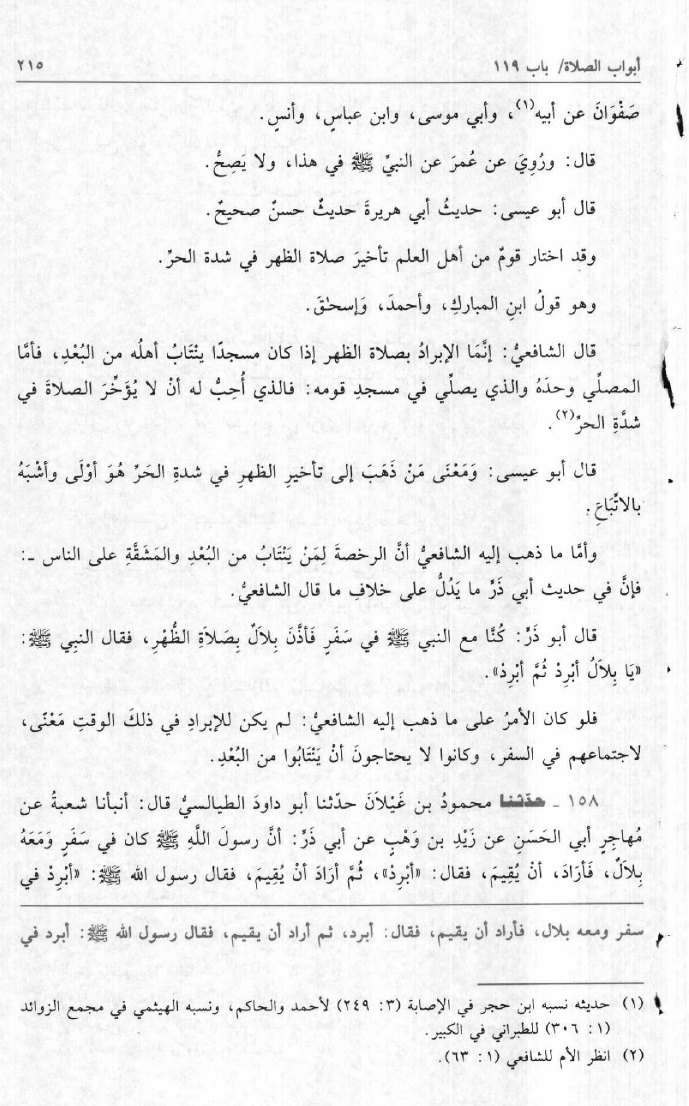 أبواب الصلاة/ باب ١١٩ ٢١٥
صَفْوَانَ عن أبيه(١)، وأبي موسى، وابن عباسٍ، وأنسٍ.
قال: ورُوِيَ عن عُمرَ عن النبيِّ ﷺ في هذا، ولا يَصِحُّ.
قال أبو عيسى: حديثُ أبي هريرةَ حديثٌ حسنٌ صحيحٌ.
وقد اختار قومٌ من أهل العلم تأخيرَ صلاة الظهر في شدة الحرِّ.
وهو قولُ ابنِ المباركِ، وأحمدَ، وَإسحٰقَ.
قال الشافعيُّ: إنَّمَا الإبرادُ بصلاة الظهر إذا كان مسجدًا ينْتَابُ أهلُه من البُعْدِ، فأمَّا
المصلِّي وحدَهُ والذي يصلِّي في مسجدِ قومه: فالذي أُحِبُّ له أنْ لا يُؤَخِّرَ الصلاةَ في
شدَّةِ الحرِّ(٢).
قال أبو عيسى: وَمَعْنَى مَنْ ذَهَبَ إلى تأخيرِ الظهرِ في شدةِ الحَرِّ هُوَ أوْلَى وأشْبَهُ
بالاتِّبَاعِ.
وأمَّا ما ذهب إليه الشافعيُّ أنَّ الرخصةَ لِمَنْ يَنْتَابُ من البُعْدِ والمَشَقَّةِ على الناس ـ:
فإنَّ في حديث أبي ذَرٍّ ما يَدُلُّ على خلافِ ما قال الشافعيُّ.
قال أبو ذَرٍّ: كُنَّا مع النبي ﷺ في سَفَرٍ فَأذَّنَ بِلاَلٌ بِصَلاَةِ الظُّهْرِ، فقال النبِي ﷺ:
«يَا بِلاَلُ أبْرِدْ ثُمَّ أبْرِدْ».
فلو كان الأمرُ على ما ذهب إليه الشافعيُّ: لم يكن للإبرادِ في ذلكَ الوقتِ مَعْنًى،
لاجتماعهم في السفر، وكانوا لا يحتاجونَ أنْ يَنْتَابُوا من البُعْدِ.
١٥٨ ـ حدّثنا محمودُ بن غَيْلاَنَ حدّثنا أبو داودَ الطيالسيُّ قال: أنبأنا شعبةُ عن
مُهاجِرٍ أبي الحَسَنِ عن زَيْدِ بن وَهْبٍ عن أبي ذَرٍّ: أنَّ رسولَ اللَّهِ ﷺ كان في سَفَرٍ وَمَعَهُ
بِلاَلٌ، فَأرَادَ، أنْ يُقِيمَ، فقال: «أبْرِدْ»، ثُمَّ أرَادَ أنْ يُقِيمَ، فقال رسول الله ﷺ: «أبْرِدْ في
سفر ومعه بلال، فأراد أن يقيم، فقال: أبرد، ثم أراد أن يقيم، فقال رسول الله ﷺ: أبرد في
(١) حديثه نسبه ابن حجر في الإصابة (٣: ٢٤٩) لأحمد والحاكم، ونسبه الهيثمي في مجمع الزوائد
(١: ٣٠٦) للطبراني في الكبير.
(٢) انظر الأم للشافعي (١: ٦٣).